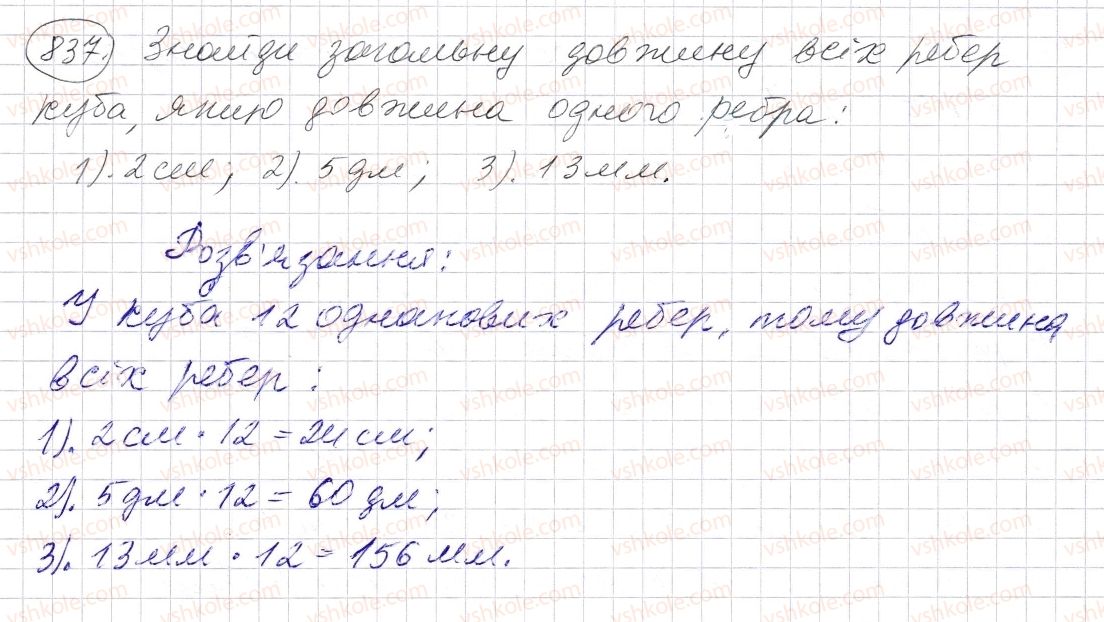 837. Знайди загальну довжину всіх ребер
куба, якщо довжина одного ребра:
1). 2 см; 2). 5 дм; 3). 13 мм.
Розв'язання:
У куба 12 однакових ребер, тому довжина
всіх ребер:
1). 2 см · 12 = 24 см;
2). 5 дм · 12 = 60 дм;
3). 13 мм · 12 = 156 мм.